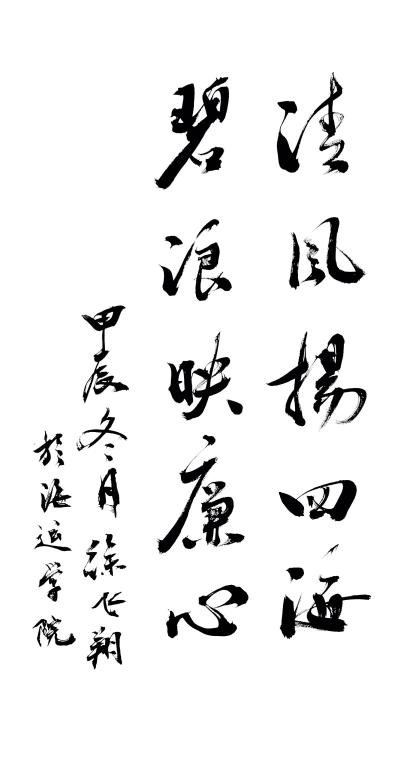 清风扬四海
碧浪映廉心
甲辰冬月 徐飞翔
於海运学院